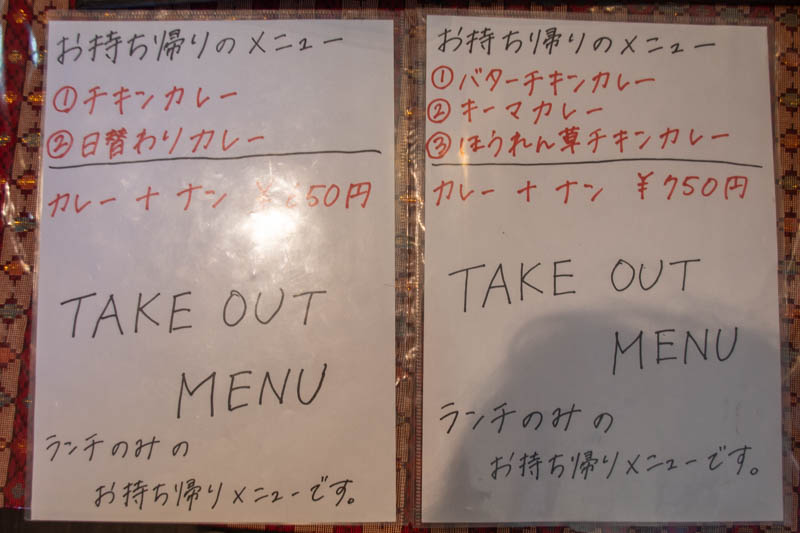 お持ち帰りのメニュー
①チキンカレー
②日替わりカレー
カレー+ナン 50円
TAKE OUT
MENU
ランチのみの
お持ち帰りメニューです。
お持ち帰りのメニュー
①バターチキンカレー
②キーマカレー
③ほうれん草チキンカレー
カレー+ナン ¥750円
TAKE OUT
MENU
ランチのみの
お持ち帰りメニューです。